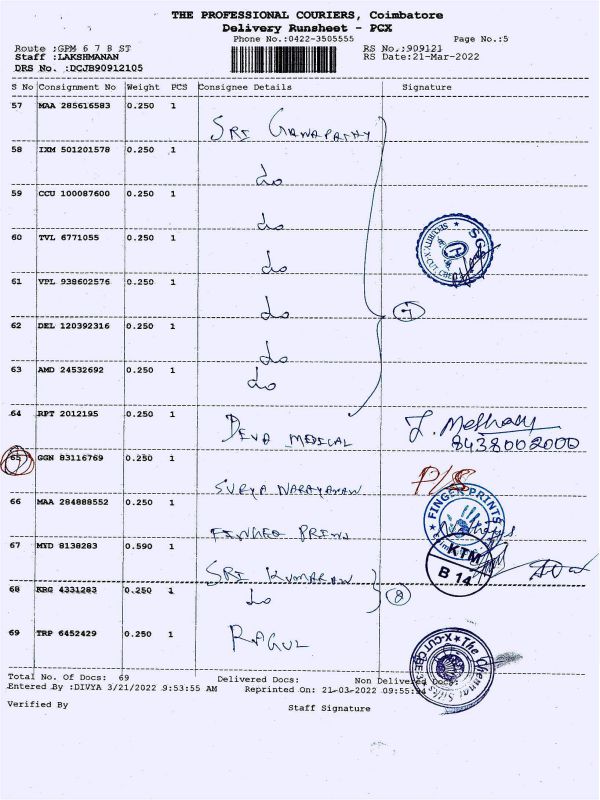 THE PROFESSIONAL COURIERS, Coimbatore
Delivery Runsheet - PCX
Phone No.:0422-3505555 Page No.:5
Route :GPM 6 7 8 ST RS No.:909121
Staff :LAKSHMANAN RS Date:21-Mar-2022
DRS No. :DCJB90912105
S No Consignment No Weight PCS Consignee Details Signature
57 MAA 285616583 0.250 1
SRI GANAPATHY
58 IXM 501201578 0.250 1
do
59 CCU 100087600 0.250 1
do
60 TVL 6771055 0.250 1
do
61 VPL 938602576 0.250 1
do
7
62 DEL 120392316 0.250 1
do
63 AMD 24532692 0.250 1
do
64 RPT 2012195 0.250 1
DEVA MEDICAL
8438002000
65 GGN 83116769 0.250 1
P/S
SURYA NARAYANAN
66 MAA 284888552 0.250 1
FINGER PRINTS
67 MYD 8138283 0.590 1
KTM
B 14
SRI KUMARAN
68 KRG 4331283 0.250 1
do
69 TRP 6452429 0.250 1
RAGUL
The Chennai Silks
Total No. Of Docs: 69 Delivered Docs: Non Delivered Docs:
Entered By :DIVYA 3/21/2022 9:53:55 AM Reprinted On: 21-03-2022 09:55:34
Verified By Staff Signature